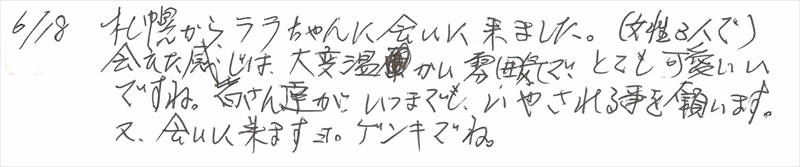 6/18 札幌から、ララちゃんに会いに来ました。(女性3人で)
会えた感じは、大変温かい雰囲気で、とても可愛いい
ですね。皆さん達が、いつまでも、いやされる事を願います。
又、会いに来ますヨ。ゲンキでね。